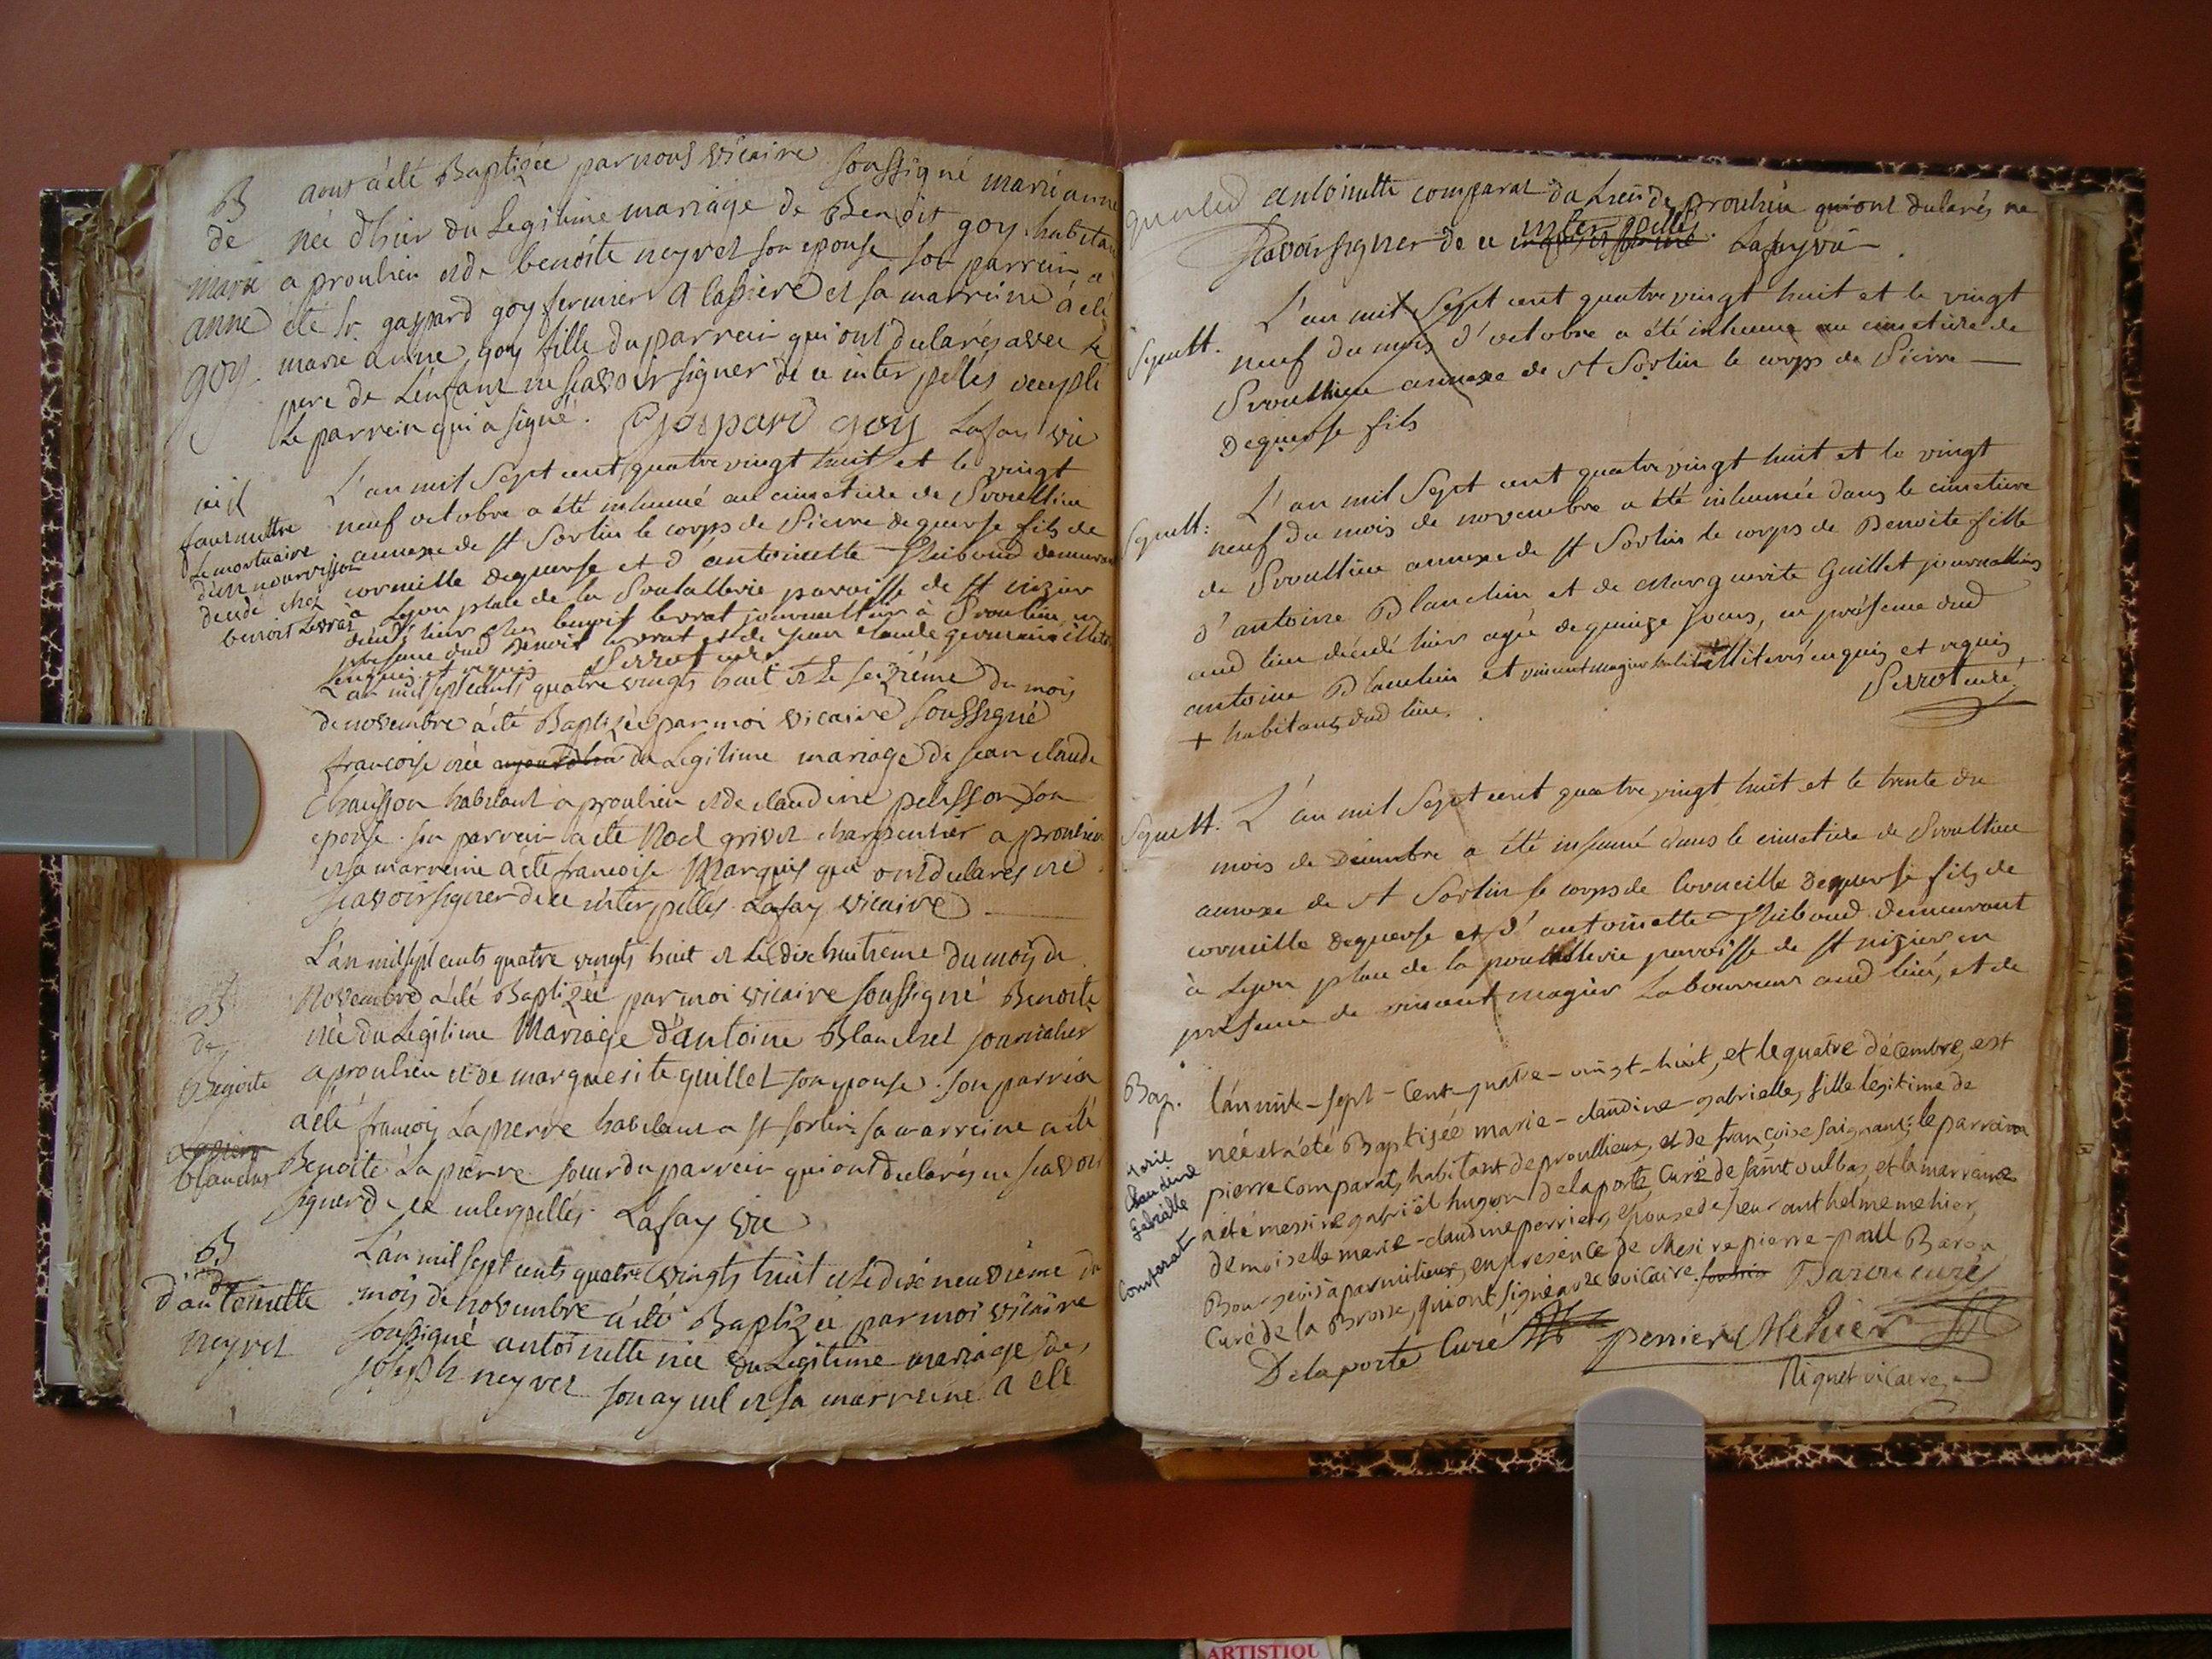 B
de
marie
anne
goy
aout a été Baptizée par nous vicaire soussigné marie anne
née d'hier du Legitime mariage de Benoit goy habitant
a proulieu et de benoite neyret son epouse son parrein a
été Sr. gaspard goy fermier a et sa marreine a été
marie anne goy fille du parrein qui ont declarés avec le
pere de L'enfant ne scavoir signer de ce interpellés excepté
le parrein qui a signé. Gaspard goy Lafay vic
faut mettre
le mortuaire
d'un nourrisson
decedé chez
benoit Levrat
L'an mil Sept cent quatre vingt huit et le vingt
neuf octobre a été inhumé au cimetiere de Proullieu
annexe de St Sorlin le corps de Pierre dequerse fils de
corneille dequerse et d'antoinette Thibaud demeurant
à Lyon place de la Poulallerie paroisse de St nizier
décédé hier chez benoit levrat journallier à Proulieu en
présence dud Benoit levrat et de jean claude germain illiteres
enquis et requis Perrot curé
L'an mil sept cents quatre vingts huit et le seizième du mois
de novembre a été Baptizée par moi vicaire soussigné
francoise née aujourd'hui du Legitime mariage de jean claude
chausson habitant a proulieu et de claudine pelisson son
epouse. son parrein a été Noel grivet charpentier a proulieu
et sa marreine a été francoise Marquis qui ont declarés ne
scavoir signer de ce interpellés Lafay vicaire
B
de
Benoite
blanchet
L'an mil sept cents quatre vingts huit et le dix huitieme du mois de
Novembre a été Baptizée par moi vicaire soussigné Benoite
née du Legitime Mariage d'antoine Blanchet journalier
a proulieu et de marguerite guillet son epouse. son parrein
a été françois Lapierre habitant a St Sorlin sa marreine a été
Benoite Lapierre soeur du parrein qui ont declarés ne scavoir
signer de ce interpellés. Lafay vic
B
d'antoinette
neyret
L'an mil sept cents quatre vingts huit et le dix neuvième du
mois de novembre a été Baptizée par moi vicaire
soussigné antoinette née du Legitime mariage de
joseph neyret son ayeul et sa marreine a été
antoinette comparat du Lieu de proulieu qui ont declarés ne
scavoir signer de ce interpellés. Lafay vic
Sepult.
L'an mil Sept cent quatre vingt huit et le vingt
neuf du mois d'octobre a été inhumé au cimetiere de
Proullieu annexe de St Sorlin le corps de Pierre
Dequerse fils
Sepult:
L'an mil Sept cent quatre vingt huit et le vingt
neuf du mois de novembre a été inhumée dans le cimetiere
de Proullieu annexe de St Sorlin le corps de Benoite fille
d'antoine Blanchin et de Marguerite Guillet journalliers
aud lieu décédé hier agée de quinze jours, en présence dud
antoine Blanchin et vincent magier illiterés enquis et requis
+ habitants dud lieu. Perrot curé
Sepult.
L'an mil Sept cent quatre vingt huit et le trente du
mois de Décembre a été inhumé dans le cimetiere de Proullieu
annexe de St Sorlin le corps de Corneille Dequerse fils de
corneille Dequerse et d'antoinette Thibaud demeurant
à Lyon place de la poulallerie paroisse de St nizier en
présence de vincent magier Laboureur aud lieu, et de
Bap.
Marie
Claudine
Gabrielle
Comparat
l'an mil - sept - cent - quatre - vingt - huit, et le quatre décembre, est
née et a été Baptisée marie - claudine - gabrielle, fille légitime de
pierre Comparat, habitant de proullieux, et de françoise saignant; le parrain
a été messire gabriël hugon delaporte, Curé de saint vulbas, et la marreine
demoiselle marie - claudine perrier, epouse de sieur anthelme mehier,
Bourgeois a parmilieux, en presence de Mesire pierre - paul Baron
Curé de la Brosse, qui ont signé avec le vicaire. Baron curé
Delaporte Curé perrier Mehier
Niquet vicaire
ARTISTIQU